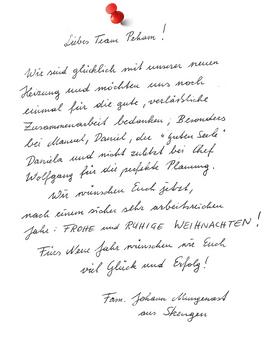 Liebes Team Peham!
Wir sind glücklich mit unserer neuen
Heizung und möchten uns noch
einmal für die gute, verläßliche
Zusammenarbeit bedanken, Besonders
bei Manuel, Daniel, der "guten Seele"
Daniela und nicht zuletzt bei Chef
Wolfgang für die perfekte Planung.
Wir wünschen Euch jetzt,
nach einem sicher sehr arbeitsreichen
Jahr: FROHE und RUHIGE WEIHNACHTEN!
Fürs Neue Jahr wünschen wir Euch
viel Glück und Erfolg!
Fam. Johann Mungenast
aus